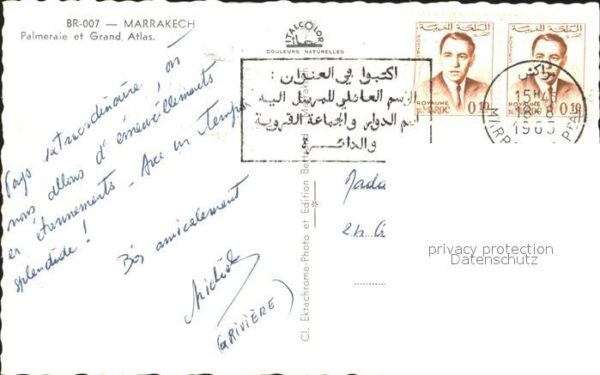 BR-007 — MARRAKECH
Palmeraie et Grand Atlas.
ITALCOLOR
COULEURS NATURELLES
Pays extraordinaire, où
nous allons d'émerveillements
en étonnements - Avec un temps
splendide !
Bien amicalement
Michèle
(GRIVIÈRE)
Cl. Ektachrome-Photo et Edition
اكتبوا في العنوان :
الاسم العائلي للمرسل اليه
اسم الدوار والجماعة القروية
والدائرة
المملكة المغربية
ROYAUME DU MAROC
0,10
المملكة المغربية
ROYAUME DU MAROC
0,10
مراكش
15H45
18-8
1965
privacy protection
Datenschutz